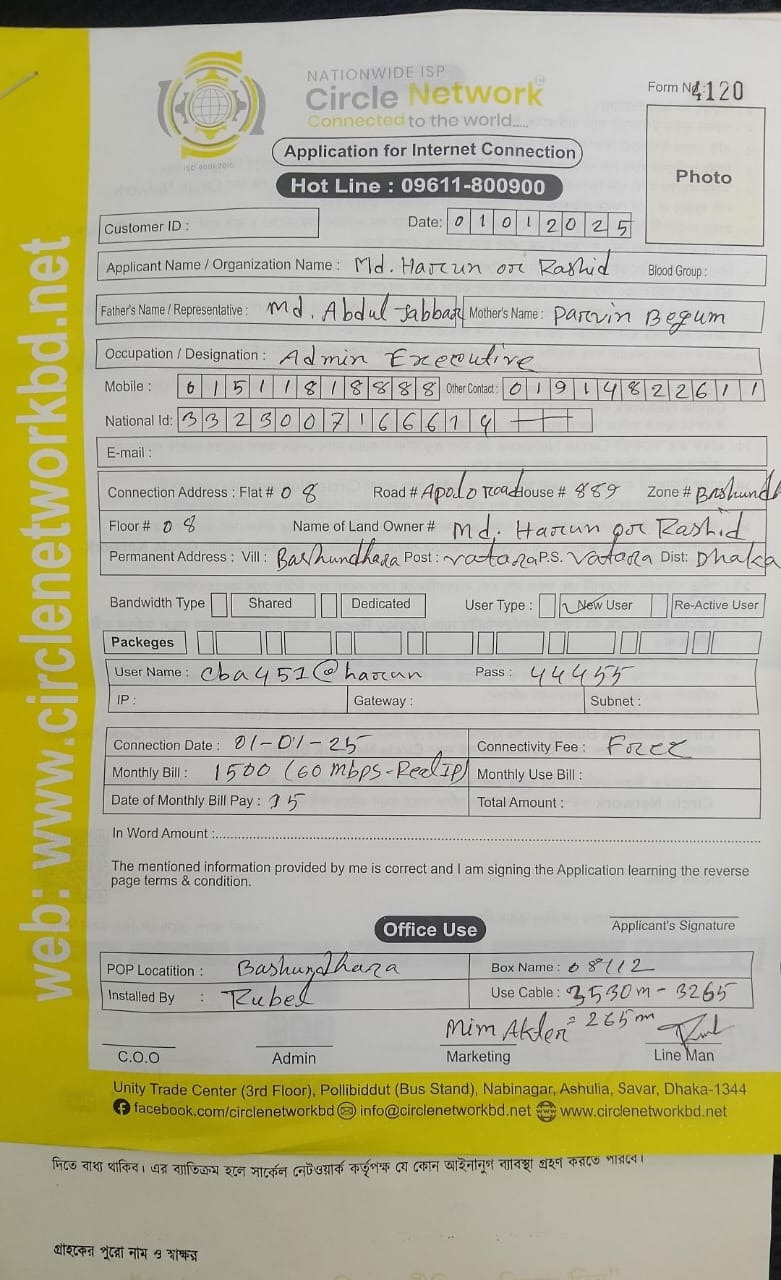 NATIONWIDE ISP
Circle Network
Connected to the world.....
ISO 9001:2015
Form No.: 4120
Application for Internet Connection
Hot Line : 09611-800900
Photo
Customer ID :
Date: 01012025
Applicant Name / Organization Name : Md. Harun or Rashid Blood Group :
Father's Name / Representative : Md. Abdul Jabbar Mother's Name : Parvin Begum
Occupation / Designation : Admin Executive
Mobile : 01511818888 Other Contact : 01914822611
National Id: 3323007166614
E-mail :
Connection Address : Flat # 08 Road # Apolo road House # 889 Zone # Bashundh
Floor # 08 Name of Land Owner # Md. Harun or Rashid
Permanent Address : Vill : Bashundhara Post : vatara P.S. Vatara Dist: Dhaka
Bandwidth Type Shared Dedicated User Type : New User Re-Active User
Packeges
User Name : cba451@harun Pass : 44455
IP : Gateway : Subnet :
Connection Date : 01-01-25 Connectivity Fee : Free
Monthly Bill : 1500 (60 mbps-Real IP) Monthly Use Bill :
Date of Monthly Bill Pay : 15 Total Amount :
In Word Amount :
The mentioned information provided by me is correct and I am signing the Application learning the reverse
page terms & condition.
Applicant's Signature
Office Use
POP Locatition : Bashundhara Box Name : 08112
Installed By : Rubel Use Cable : 3530m - 3265
Mim Akter = 265m
C.O.O Admin Marketing Line Man
Unity Trade Center (3rd Floor), Pollibiddut (Bus Stand), Nabinagar, Ashulia, Savar, Dhaka-1344
facebook.com/circlenetworkbd info@circlenetworkbd.net www.circlenetworkbd.net
web: www.circlenetworkbd.net
দিতে বাধ্য থাকিব। এর ব্যতিক্রম হলে সার্কেল নেটওয়ার্ক কর্তৃপক্ষ যে কোন আইনানুগ ব্যবস্থা গ্রহণ করতে পারবে।
গ্রাহকের পুরো নাম ও স্বাক্ষর